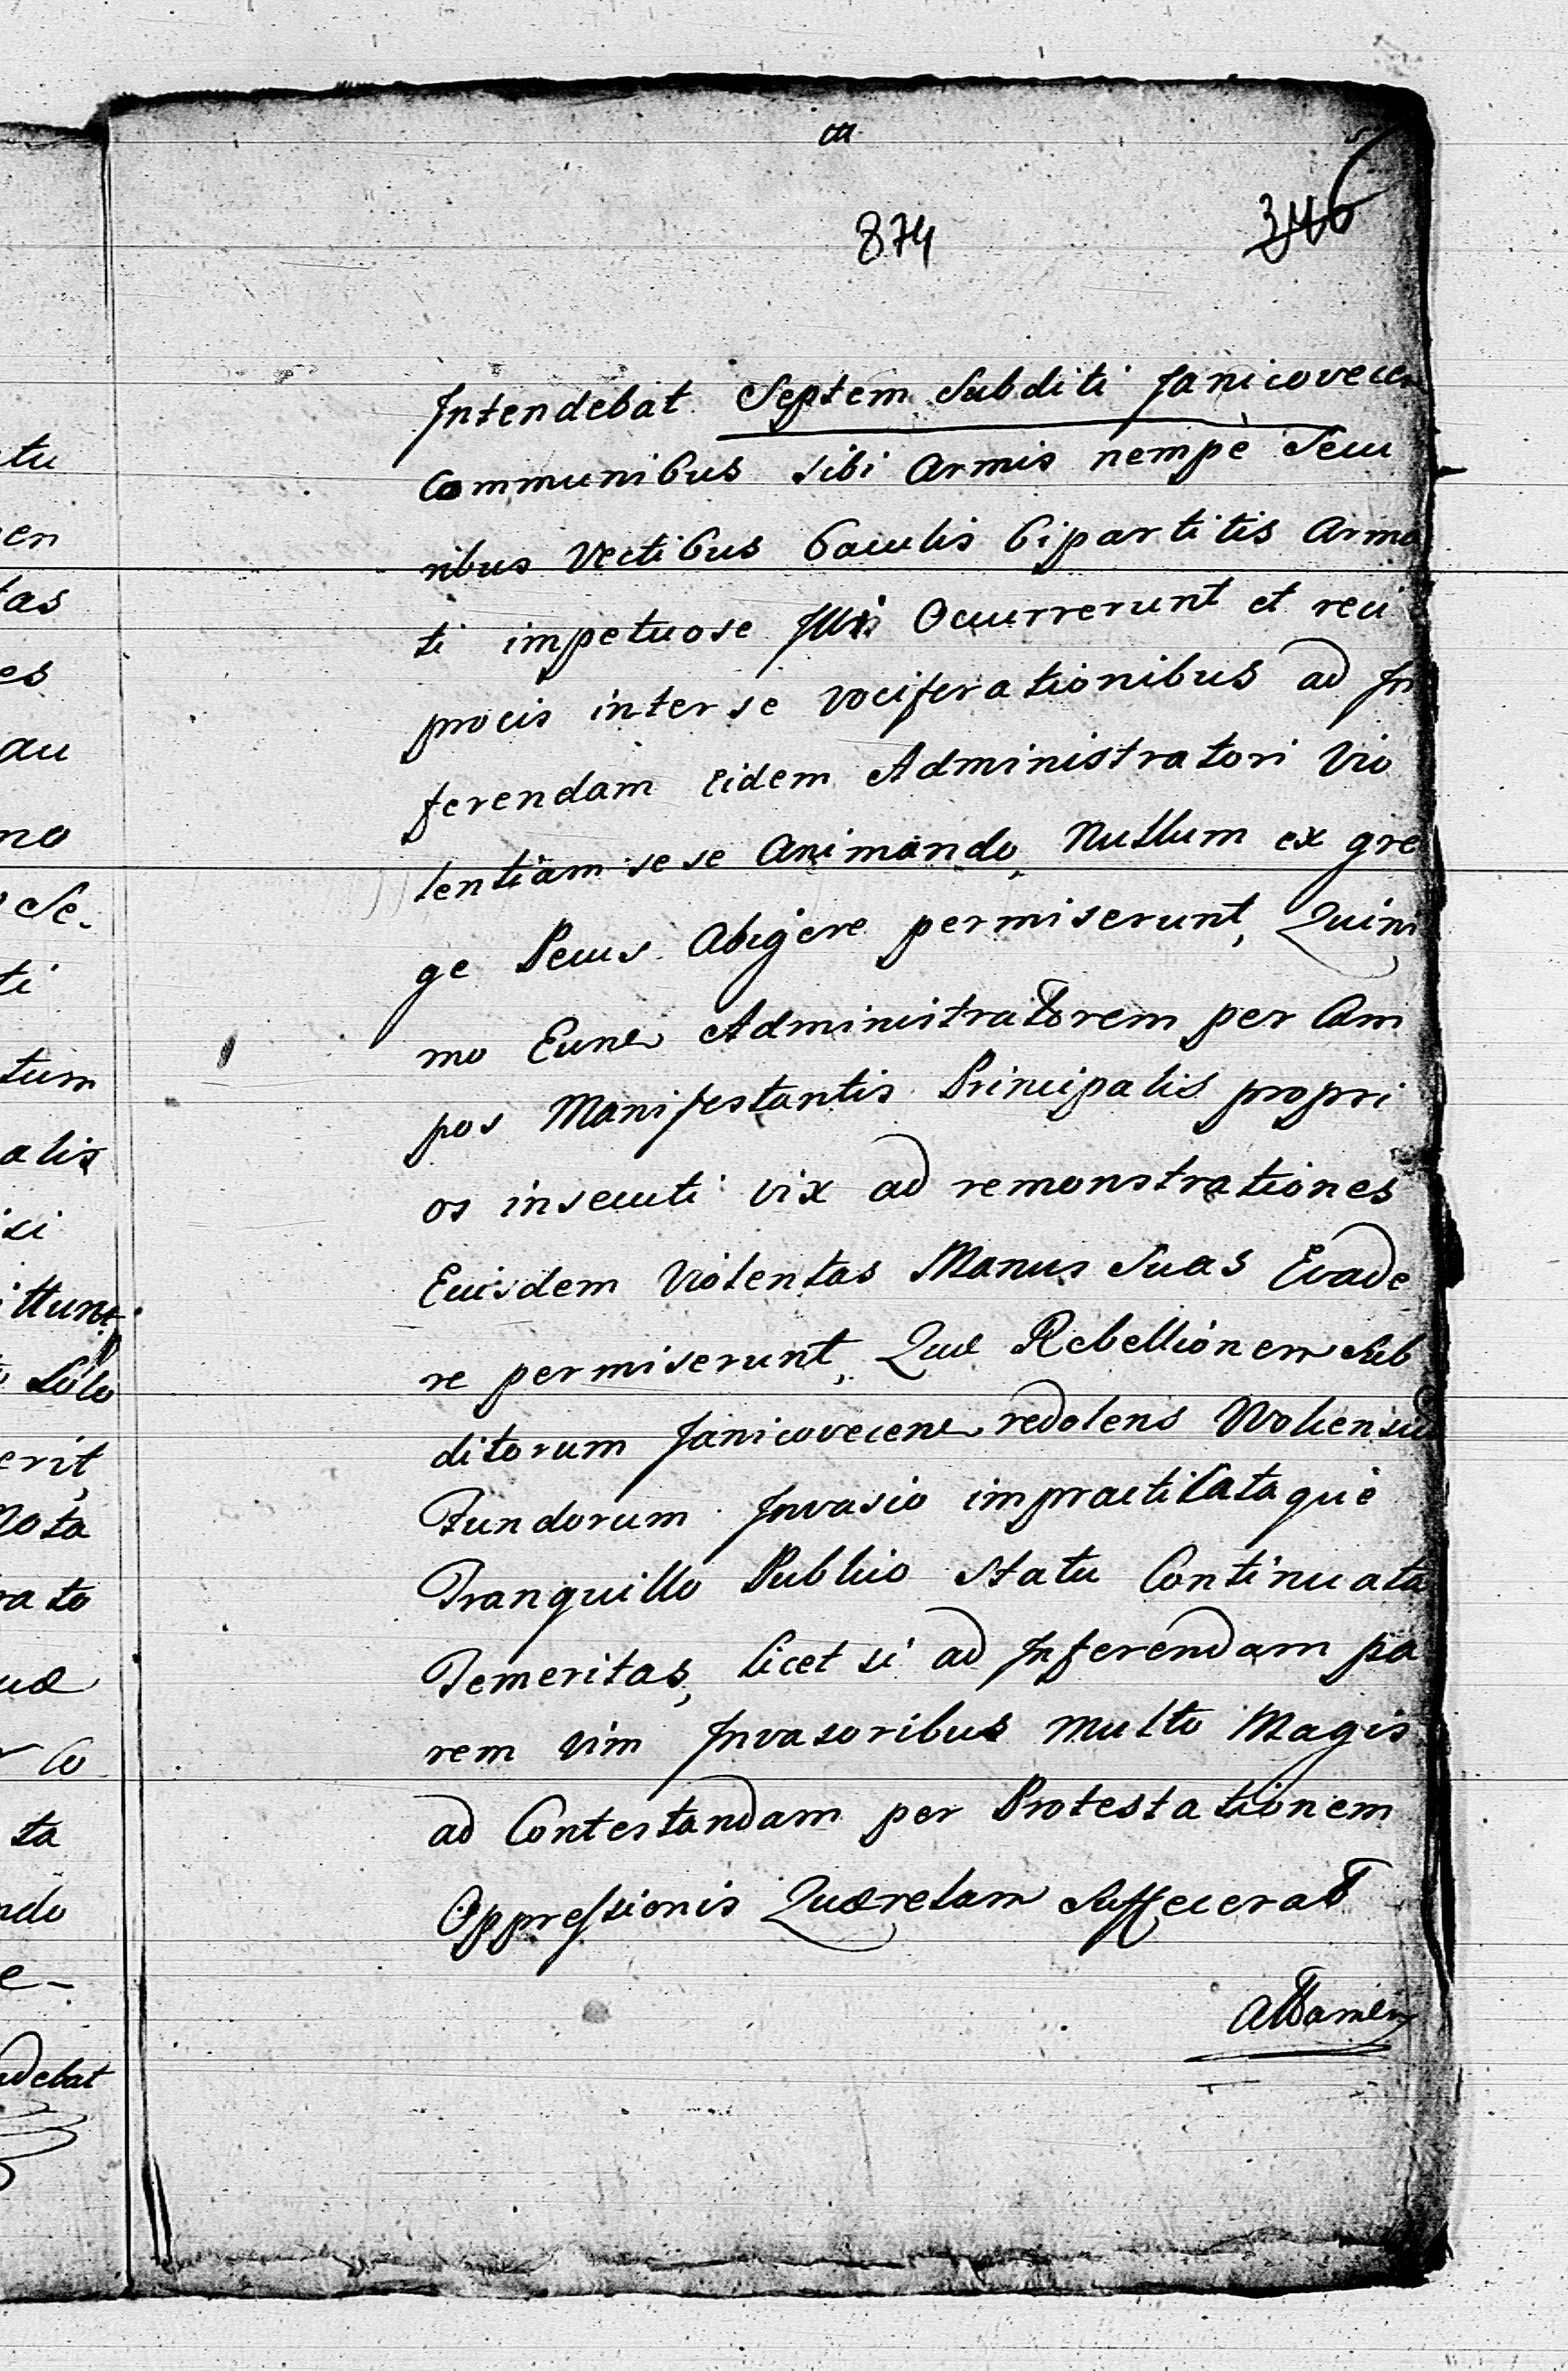 874
346
Intendebat Septem Subditi Janicovecen
Communibus sibi Armis nempè Secu
ribus Vectibus baculis bipartitis Arma
ti impetuose Illi Occurrerunt et reci
procis inter se vociferationibus ad In
ferendam eidem Administratori Vio
lentiam sese Animando, Nullum ex gre
ge Pecus Abigere permiserunt, Quini
mo Eund Administratorem per Cam
pos Manifestantis Principalis propri
os insecuti vix ad remonstrationes
Euisdem Violentas Manus Suas Evade
re permiserunt, Quæ Rebellionem Sub
ditorum Janicovecen redolens
Fundorum Invasio impracticataquè
Tranquillo Publico Statu Continuata
Temeritas, licet si ad Inferendam pa
rem vim Invasoribus multo Magis
ad Contestandam per Protestationem
Oppressionis Quærelam Suffecerat
Attamen
tu
en
tas
es
au
no
Se-
ti
tum
alis
ittunt
Solo
erit,
Nota
rato
uæ
Co
ta
ndo
e-
debat